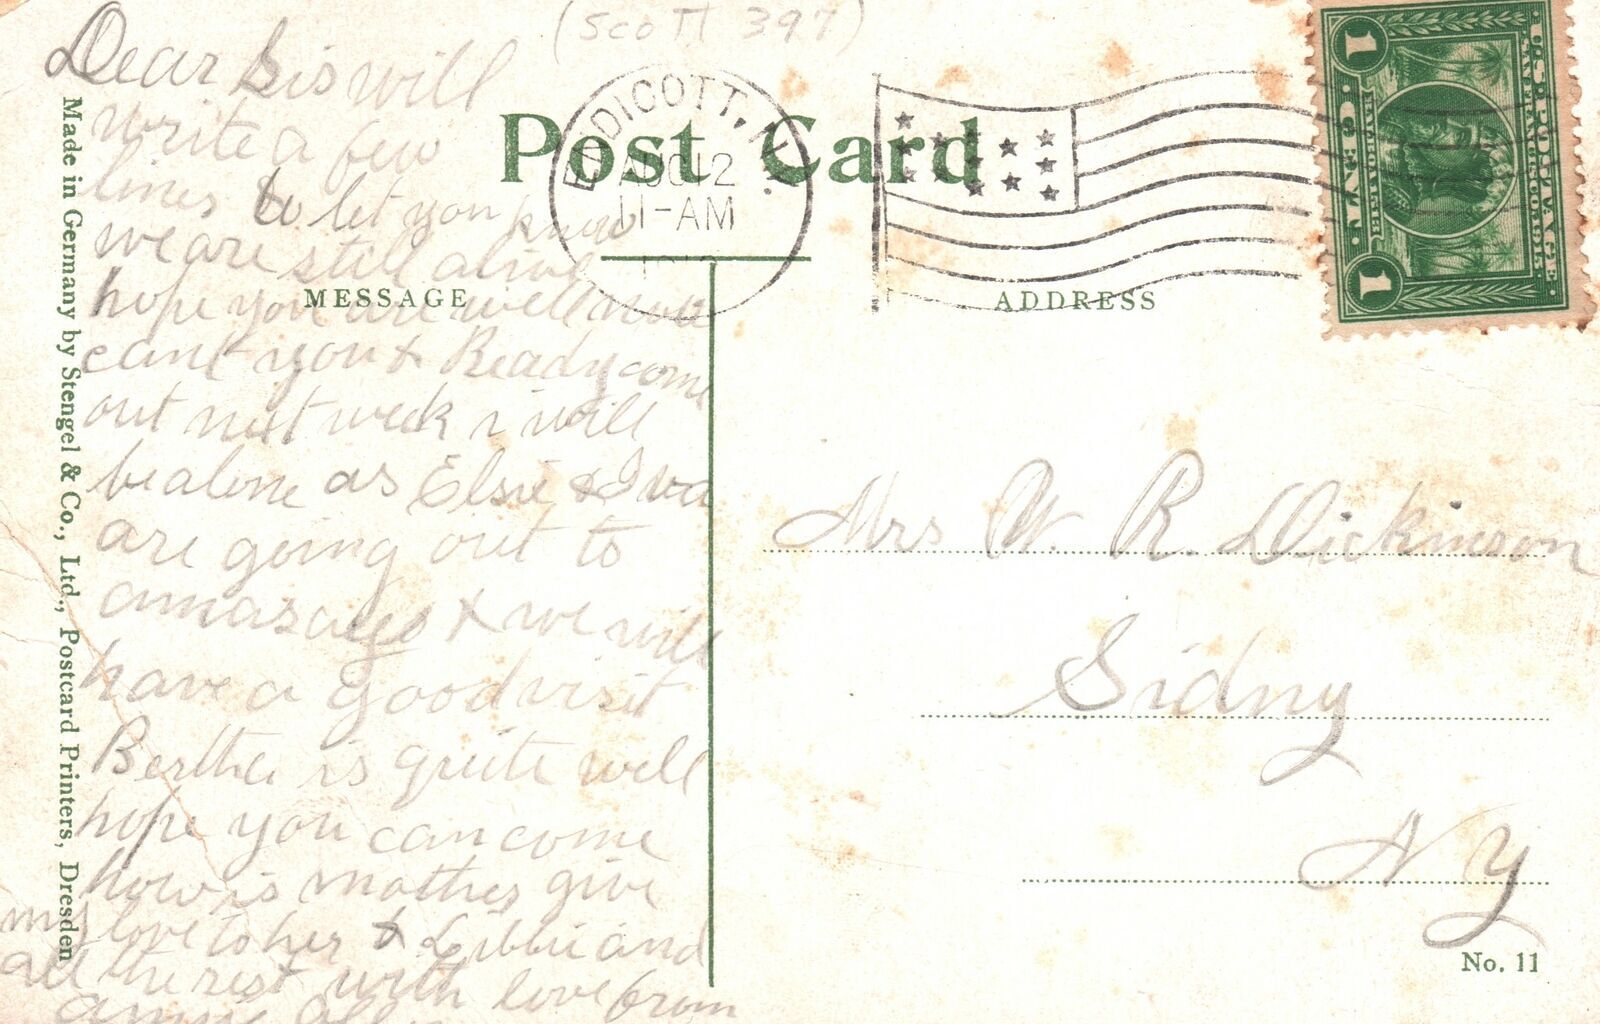 (Scott 397)
Dear Sis will
write a few
lines to let you know
we are still alive
hope you are well now
cant you & Ready come
out next week i will
be alone as Elsie & Iva
are going out to
& we will
have a good visit
Bertha is quite well
hope you can come
how is mother give
my love to her & Libbie and
all the rest with love from
Post Card
ENDICOTT, N.Y.
AUG 12
11-AM
MESSAGE
ADDRESS
U.S. POSTAGE
SAN FRANCISCO 1915
1 CENT 1
BALBOA 1513
Mrs W. R. Dickinson
Sidny
N Y
Made in Germany by Stengel & Co., Ltd., Postcard Printers, Dresden
No. 11